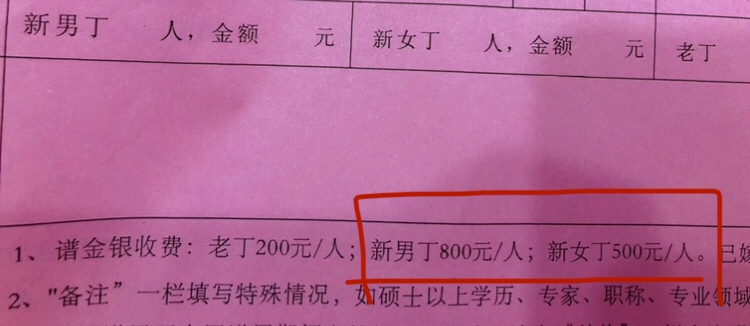 新男丁 人，金额 元 新女丁 人，金额 元 老丁
1、谱金银收费：老丁200元/人；新男丁800元/人；新女丁500元/人。已嫁
2、"备注”一栏填写特殊情况，如硕士以上学历、专家、职称、专业领域